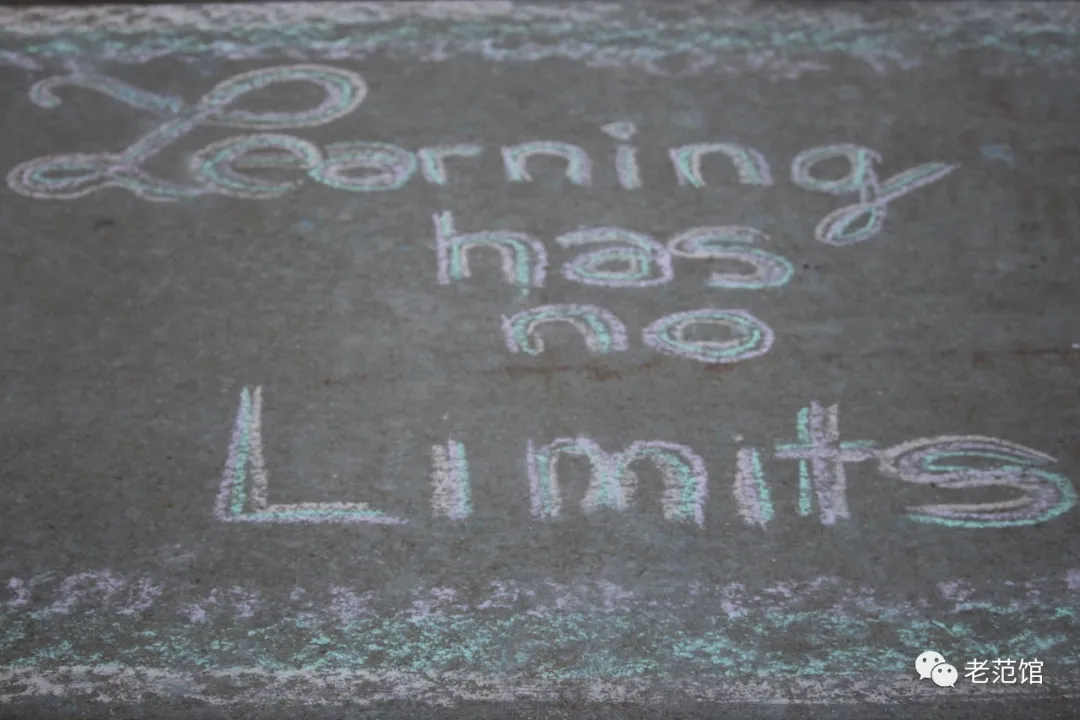 Learning
has
no
Limits
老范馆